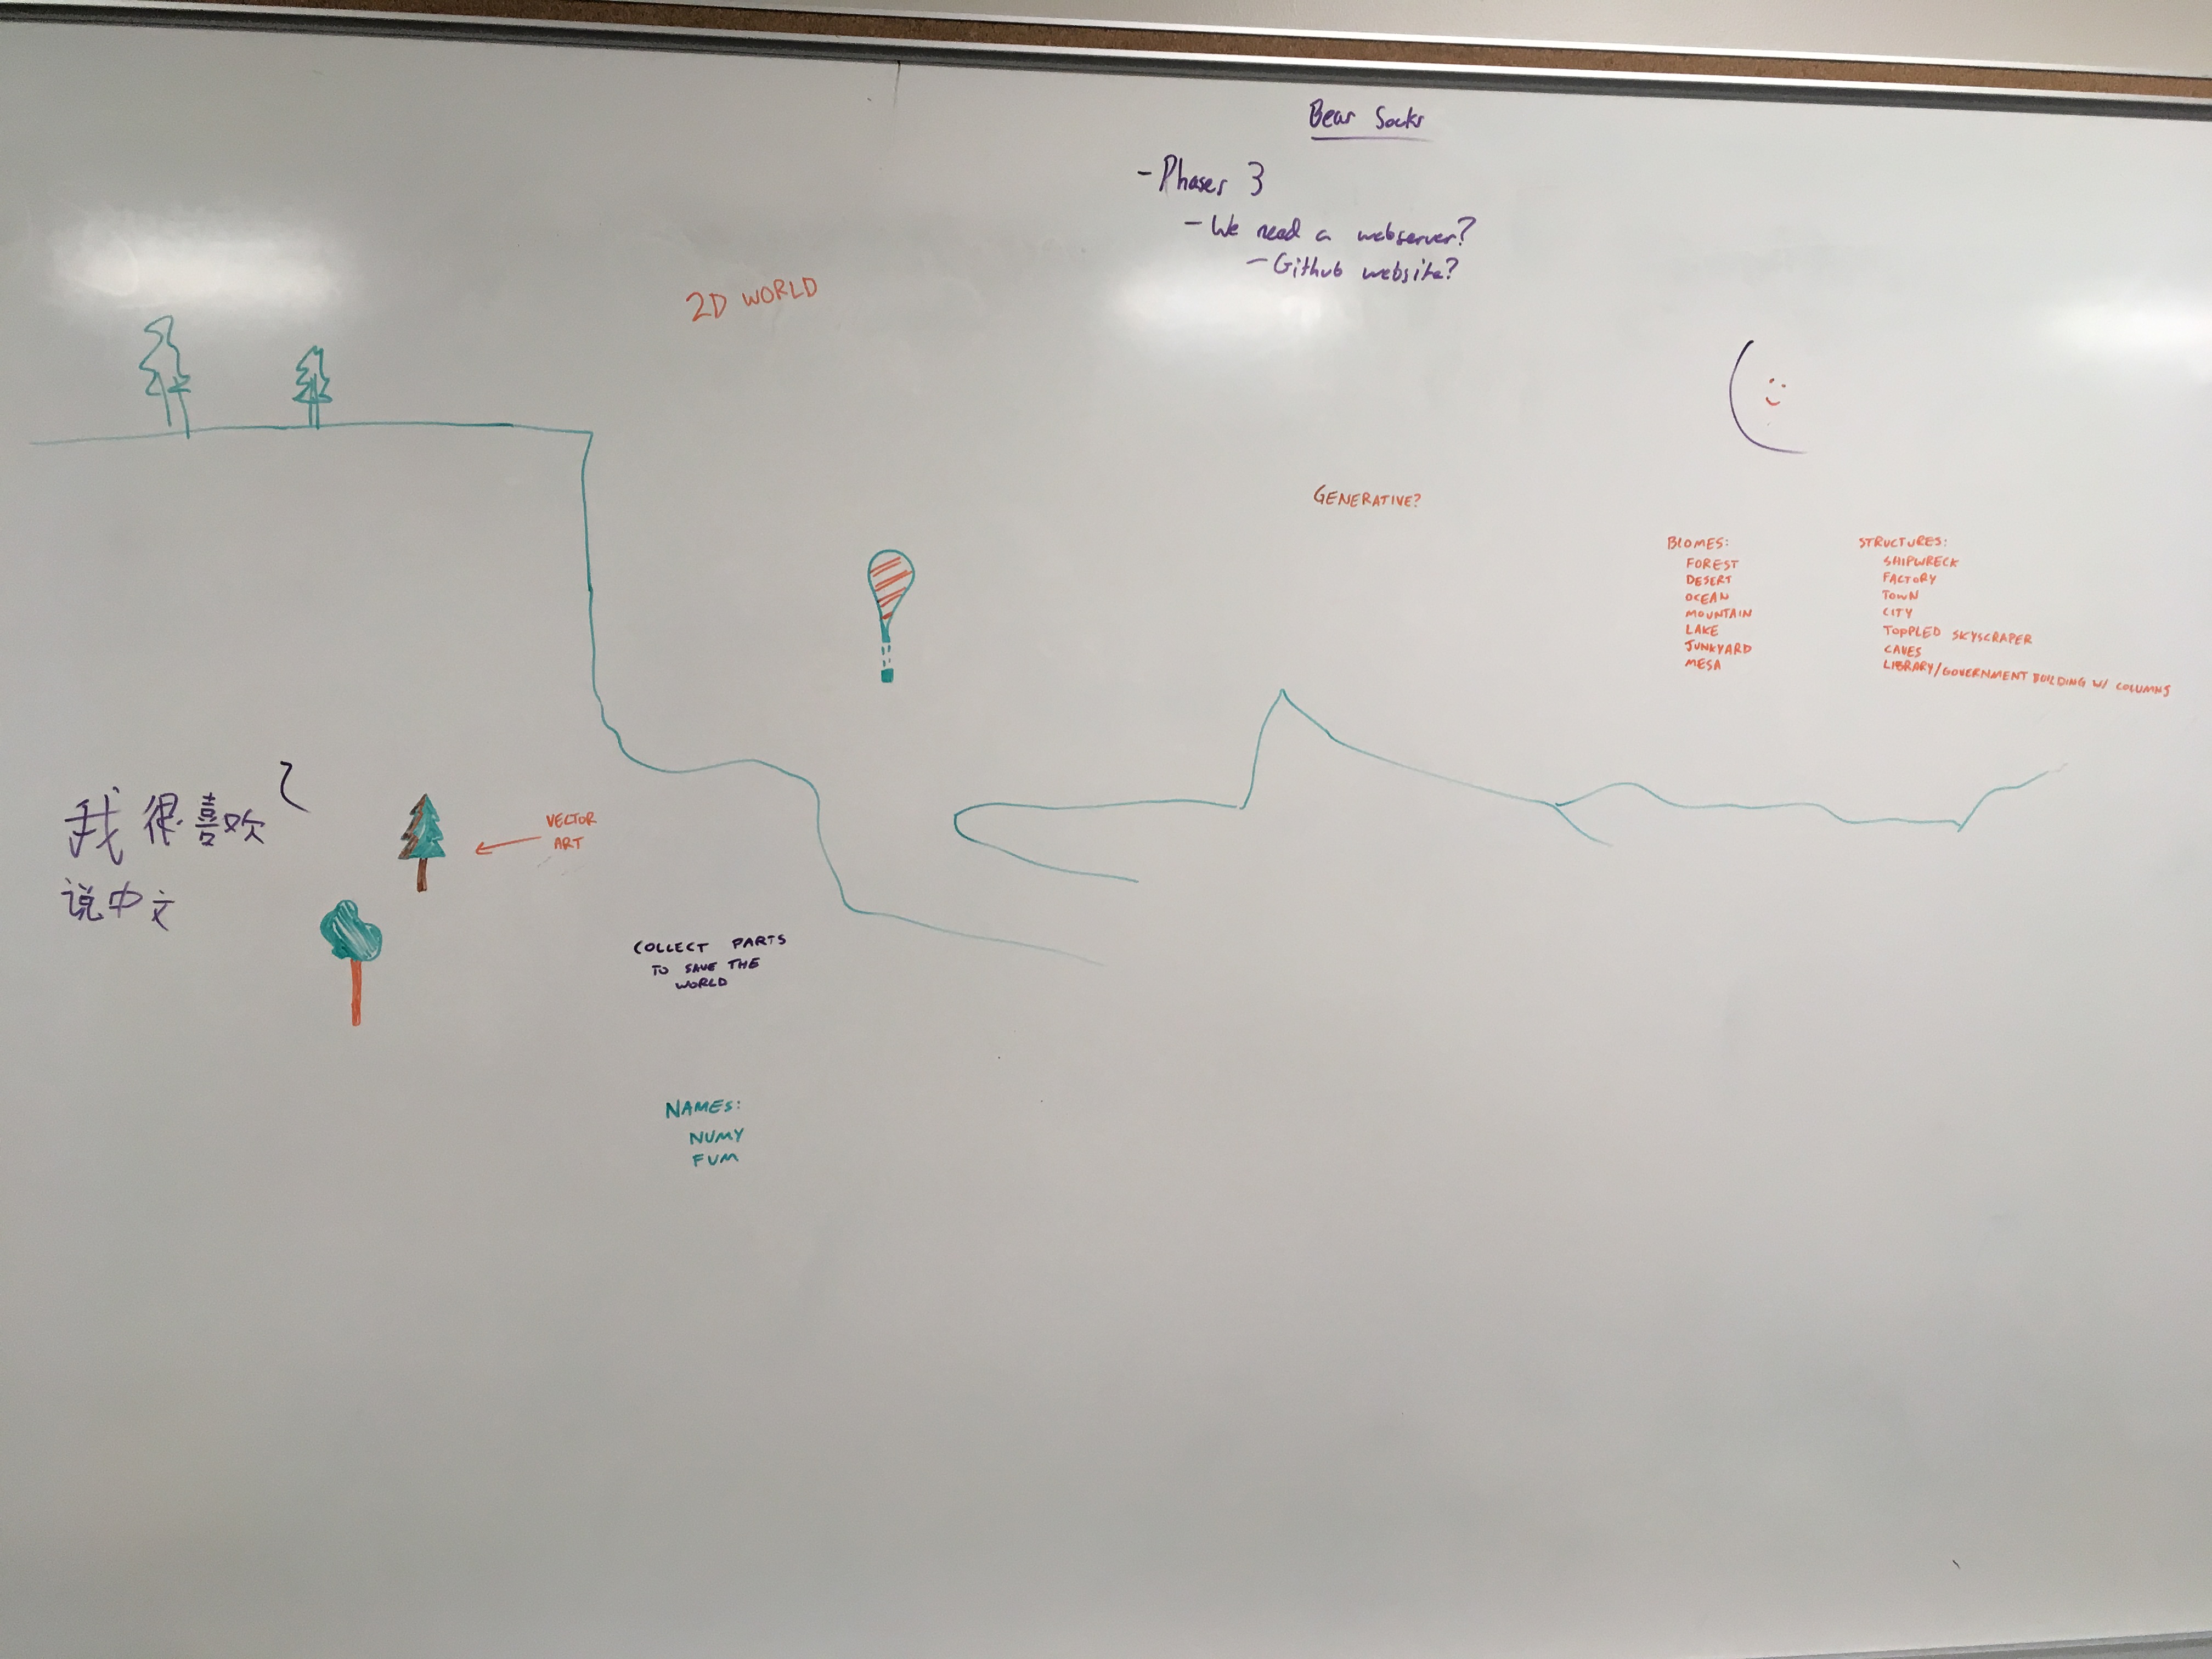 Bear Socks
- Phaser 3
- We need a webserver?
- Github website?
2D WORLD
GENERATIVE?
BIOMES:
FOREST
DESERT
OCEAN
MOUNTAIN
LAKE
JUNKYARD
MESA
STRUCTURES:
SHIPWRECK
FACTORY
TOWN
CITY
TOPPLED SKYSCRAPER
CAVES
LIBRARY/GOVERNMENT BUILDING W/ COLUMNS
我很喜欢
说中文
VECTOR
ART
COLLECT PARTS
TO SAVE THE
WORLD
NAMES:
NUMY
FUM